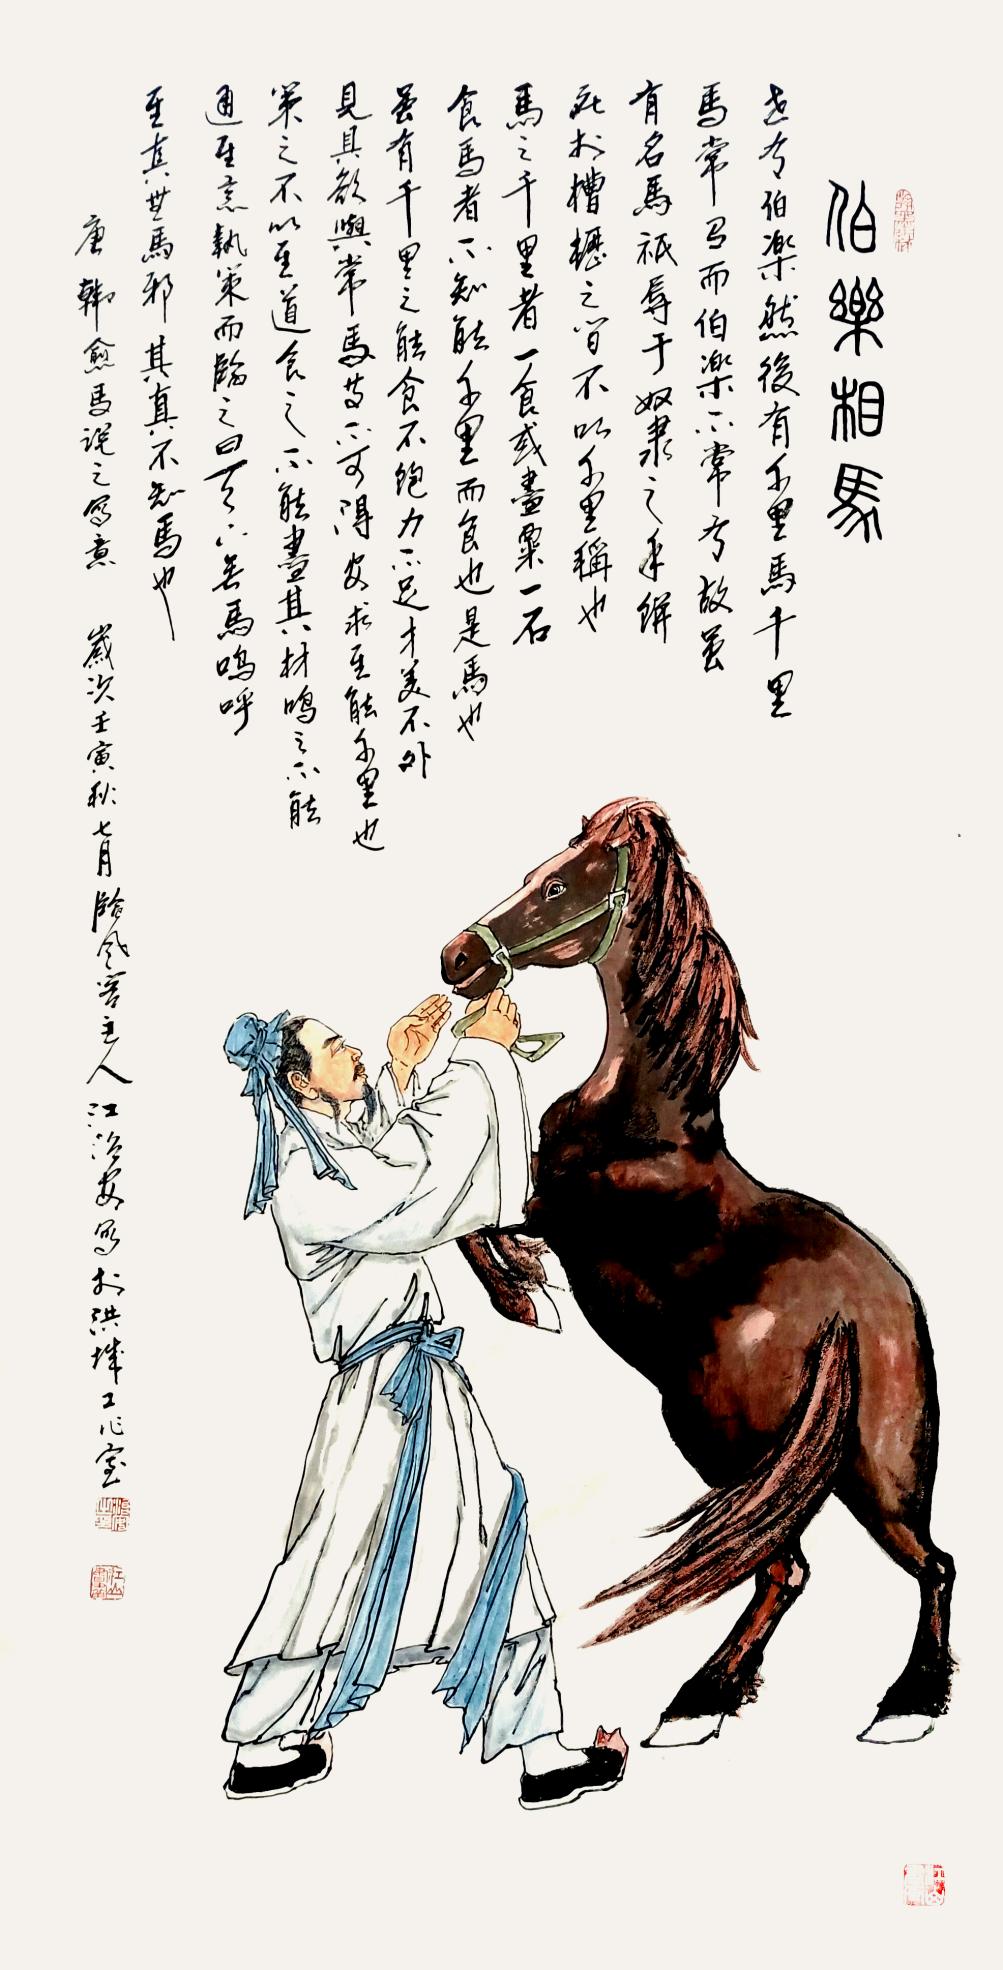 伯樂相馬
世有伯楽然後有千里馬千里
馬常有而伯楽不常有故虽
有名馬祇辱于奴隶之手駢
死於槽櫪之间不以千里稱也
馬之千里者一食或盡粟一石
食馬者不知能千里而食也是馬也
虽有千里之能食不飽力不足才美不外
見具欲與常馬等不可得安求至能千里也
策之不以至道食之不能盡其材鳴之不能
通至意執策而臨之曰天下无馬嗚呼
至真無馬邪其真不知馬也
唐韓愈馬说之寫意 歲次壬寅秋七月臨风客主人江治安寫於洪城工作室